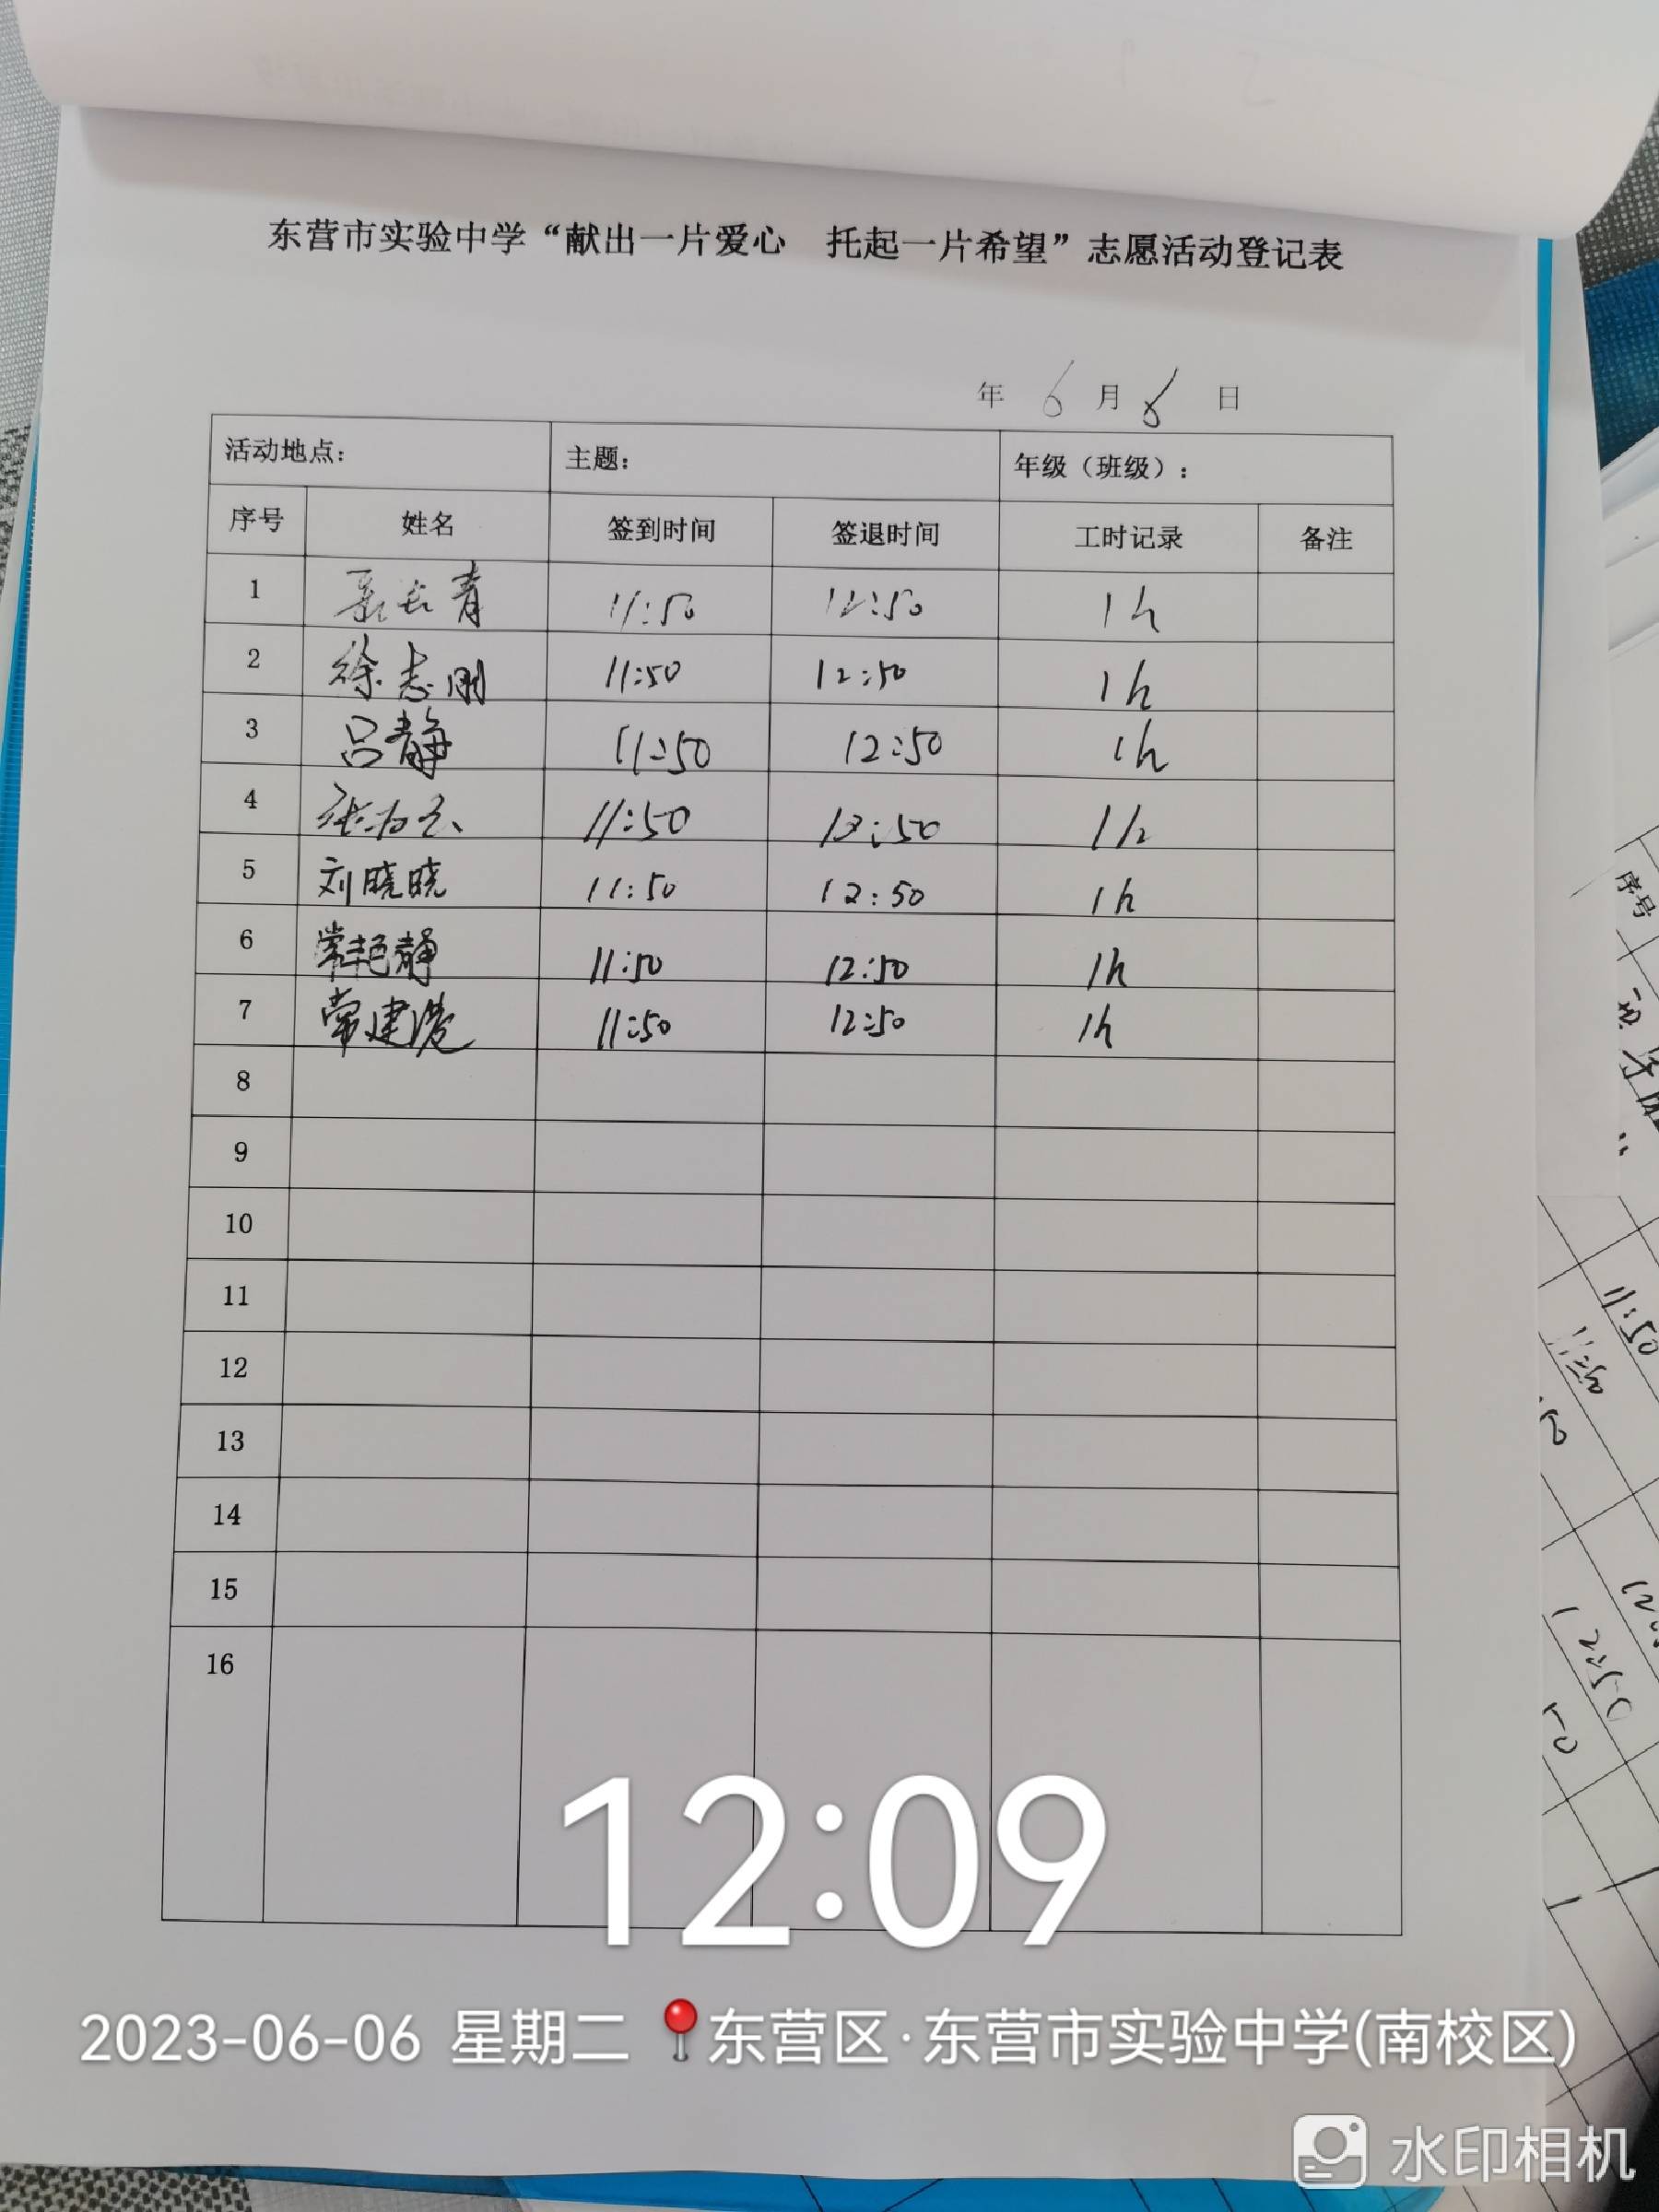 东营市实验中学“献出一片爱心 托起一片希望”志愿活动登记表
年 6 月 6 日
活动地点： 主题： 年级（班级）：
序号 姓名 签到时间 签退时间 工时记录 备注
1 青 11:50 12:50 1h
2 徐志刚 11:50 12:50 1h
3 吕静 11:50 12:50 1h
4 11:50 13:50 1h
5 刘晓晓 11:50 12:50 1h
6 常艳静 11:50 12:50 1h
7 常建浩 11:50 12:50 1h
8
9
10
11
12
13
14
15
16
序号
11:50
11:50
12:50
12:09
2023-06-06 星期二 东营区·东营市实验中学(南校区)
水印相机